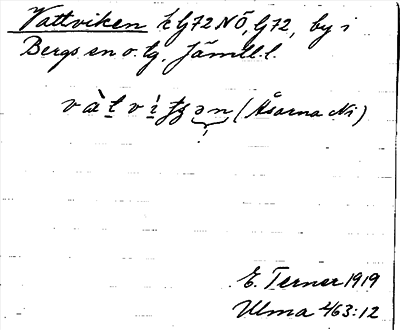 Vattviken k G72NÖ, G72, by i
Bergs sn o. tg, Jämtl. l.
(Åsarna Ni)
E. Terner 1919
Ulma 463:12